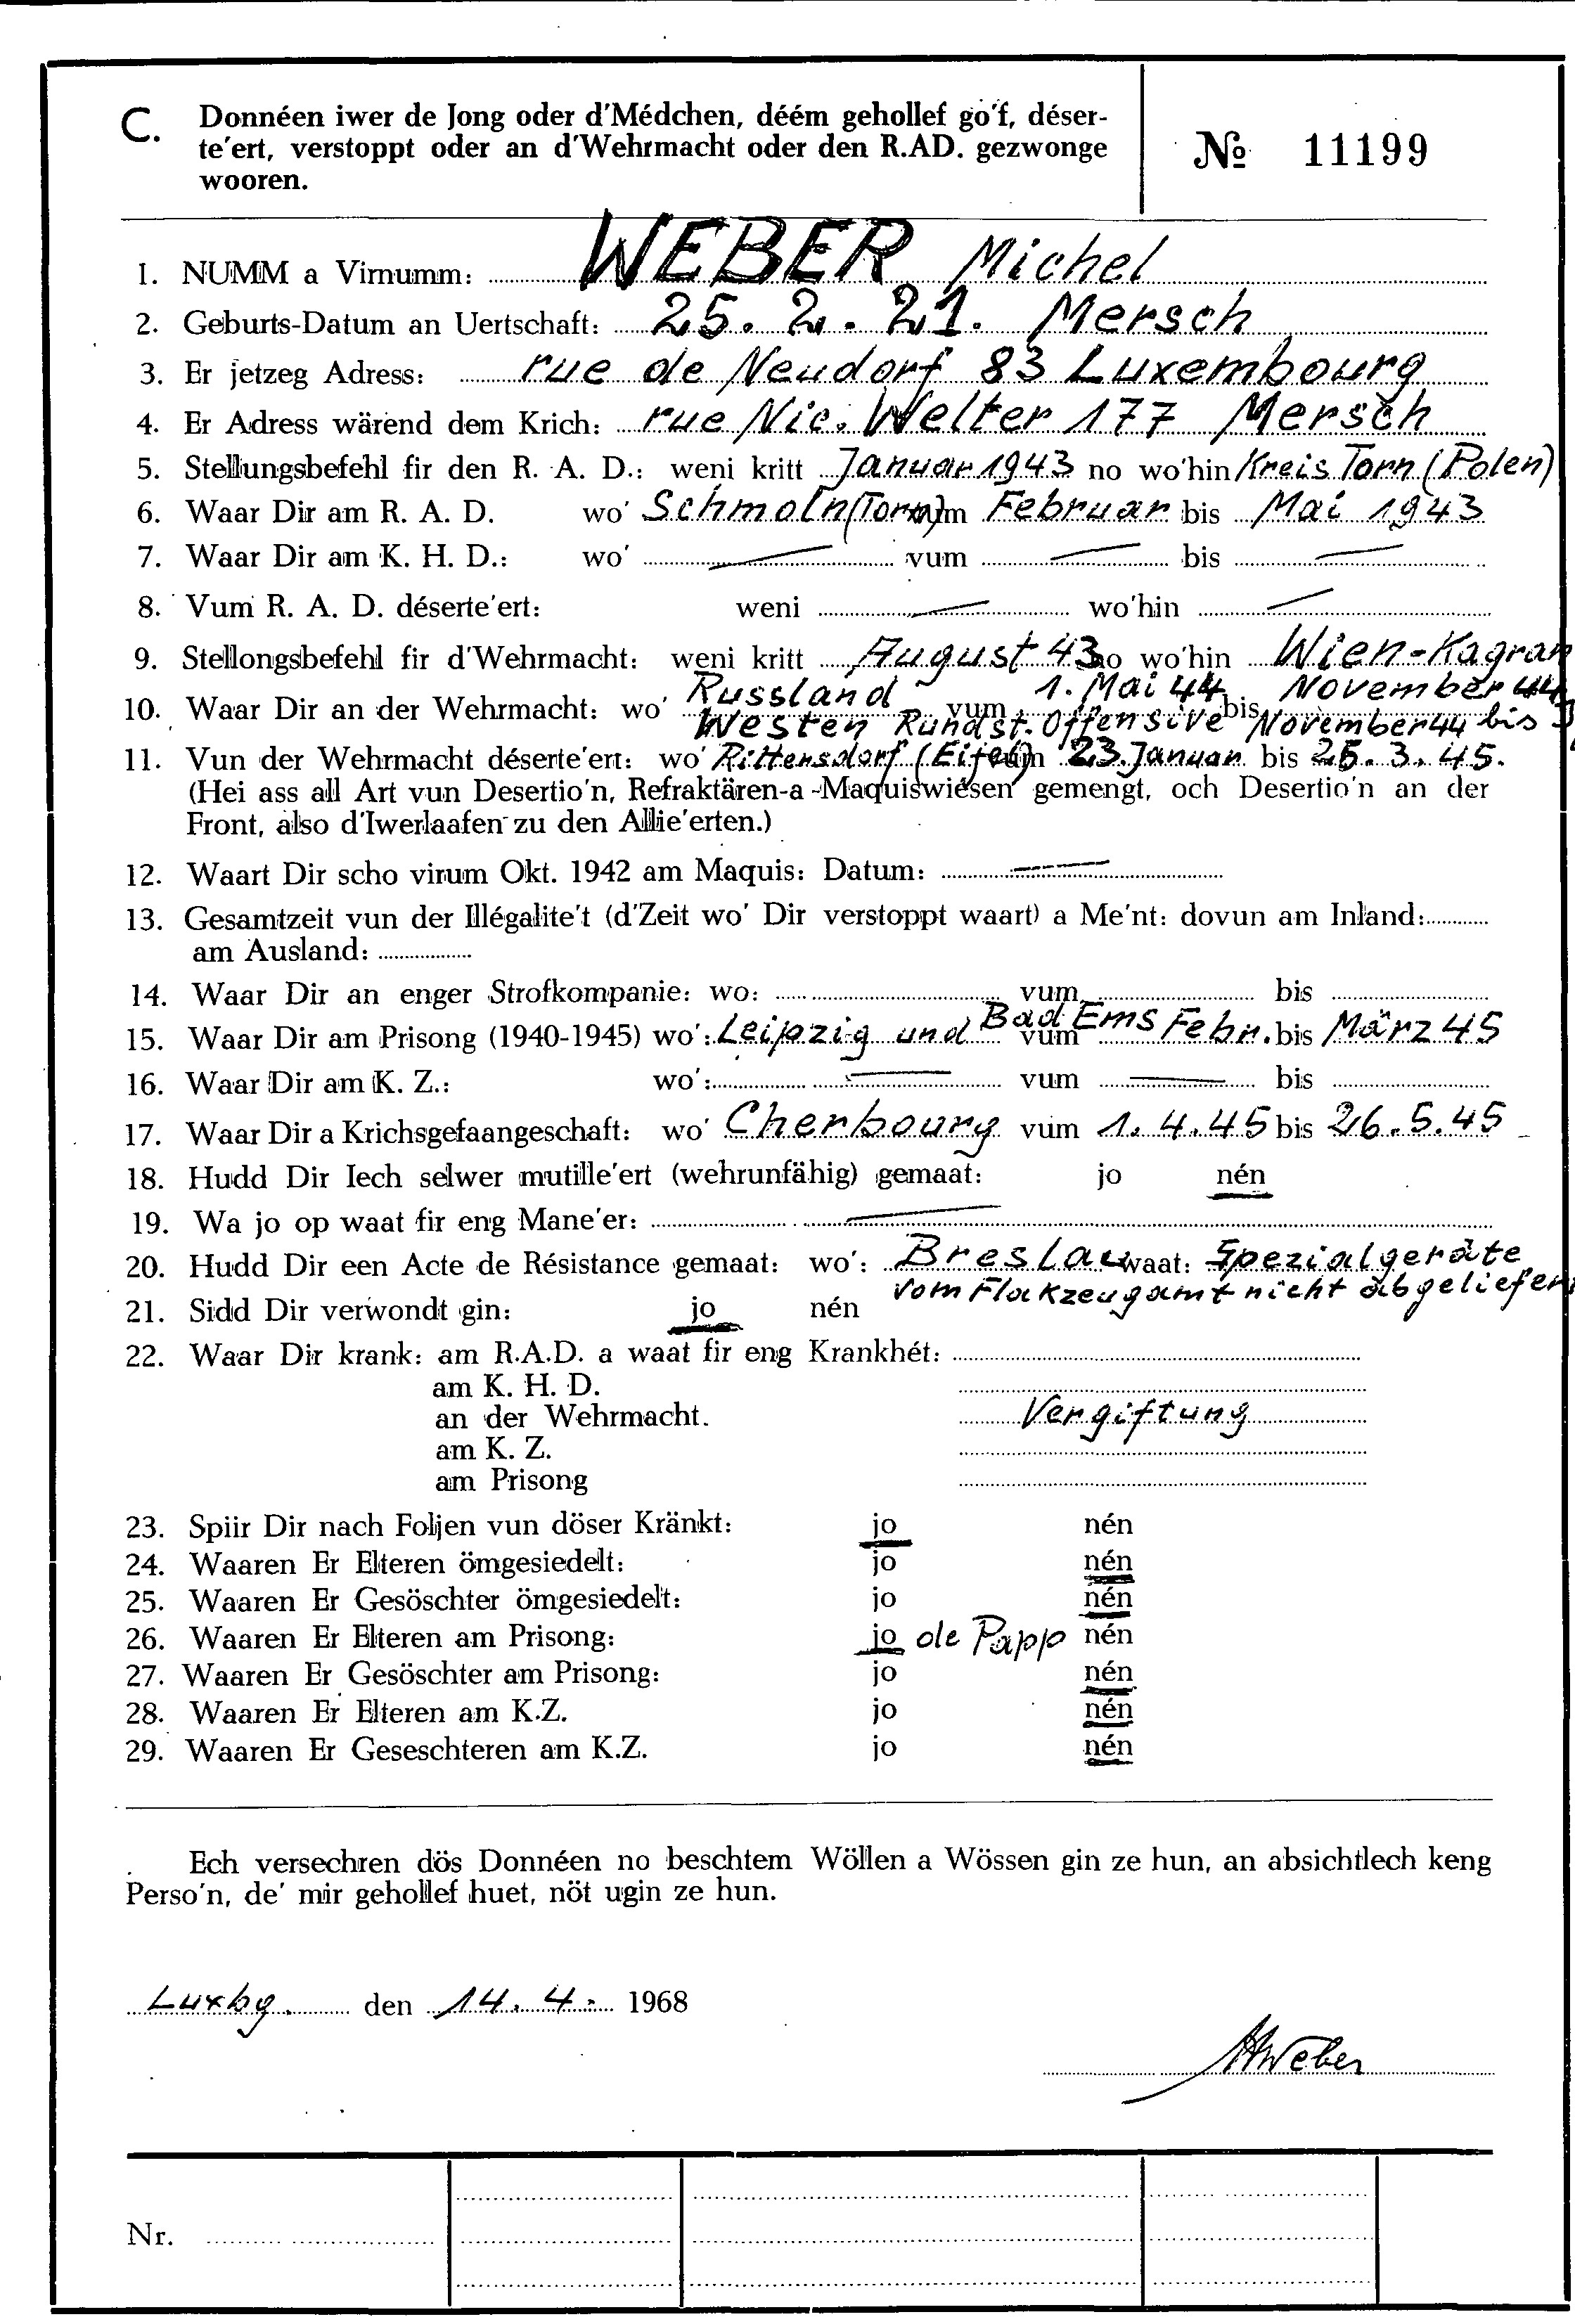 C. Donnéen iwer de Jong oder d'Médchen, déém gehollef go'f, déser-
te'ert, verstoppt oder an d'Wehrmacht oder den R.AD. gezwonge
wooren.
№ 11199
1. NUMM a Virnumm: WEBER Michel
2. Geburts-Datum an Uertschaft: 25. 2. 21. Mersch
3. Er jetzeg Adress: rue de Neudorf 83 Luxembourg
4. Er Adress wärend dem Krich: rue Nic. Welter 177 Mersch
5. Stellungsbefehl fir den R. A. D.: weni kritt Januar 1943 no wo'hin Kreis Torn (Polen)
6. Waar Dir am R. A. D. wo' Schmoln (Torn) vum Februar bis Mai 1943
7. Waar Dir am K. H. D.: wo' — vum — bis —
8. Vum R. A. D. déserte'ert: weni — wo'hin —
9. Stellongsbefehl fir d'Wehrmacht: weni kritt August 43 no wo'hin Wien-Kagran
Russland 1. Mai 44 November 44
10. Waar Dir an der Wehrmacht: wo' vum bis
Westen Rundst. Offensive November 44 bis
11. Vun der Wehrmacht déserte'ert: wo' Rittersdorf (Eifel) vum 23. Januar bis 25. 3. 45.
(Hei ass all Art vun Desertio'n, Refraktären-a-Maquiswiésen gemengt, och Desertio'n an der
Front, also d'Iwerlaafen zu den Allie'erten.)
12. Waart Dir scho virum Okt. 1942 am Maquis: Datum: —
13. Gesamtzeit vun der Illégalite't (d'Zeit wo' Dir verstoppt waart) a Me'nt: dovun am Inland:
am Ausland:
14. Waar Dir an enger Strofkompanie: wo: vum bis
15. Waar Dir am Prisong (1940-1945) wo': Leipzig und Bad Ems vum Febr. bis März 45
16. Waar Dir am K. Z.: wo': — vum — bis
17. Waar Dir a Krichsgefaangeschaft: wo' Cherbourg vum 1. 4. 45 bis 26. 5. 45
18. Hudd Dir Iech selwer mutille'ert (wehrunfähig) gemaat: jo nén
19. Wa jo op waat fir eng Mane'er: —
20. Hudd Dir een Acte de Résistance gemaat: wo': Breslau waat: Spezialgeräte
vom Flakzeugamt nicht abgeliefert
21. Sidd Dir verwondt gin: jo nén
22. Waar Dir krank: am R.A.D. a waat fir eng Krankhét:
am K. H. D.
an der Wehrmacht. Vergiftung
am K. Z.
am Prisong
23. Spiir Dir nach Foljen vun döser Kränkt: jo nén
24. Waaren Er Elteren ömgesiedelt: jo nén
25. Waaren Er Gesöschter ömgesiedelt: jo nén
26. Waaren Er Elteren am Prisong: jo de Papp nén
27. Waaren Er Gesöschter am Prisong: jo nén
28. Waaren Er Elteren am K.Z. jo nén
29. Waaren Er Geseschteren am K.Z. jo nén
Ech versechren dös Donnéen no beschtem Wöllen a Wössen gin ze hun, an absichtlech keng
Perso'n, de' mir gehollef huet, nöt ugin ze hun.
Luxbg. den 14. 4. 1968
MWeber
Nr.